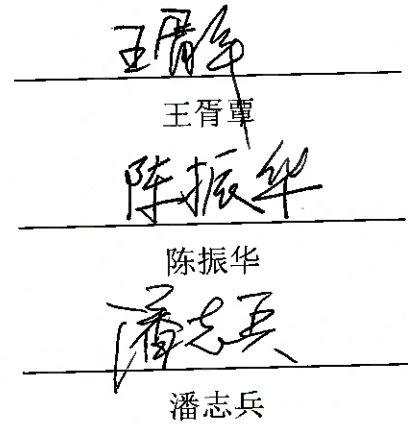 王胥覃
王胥覃
陈振华
陈振华
潘志兵
潘志兵